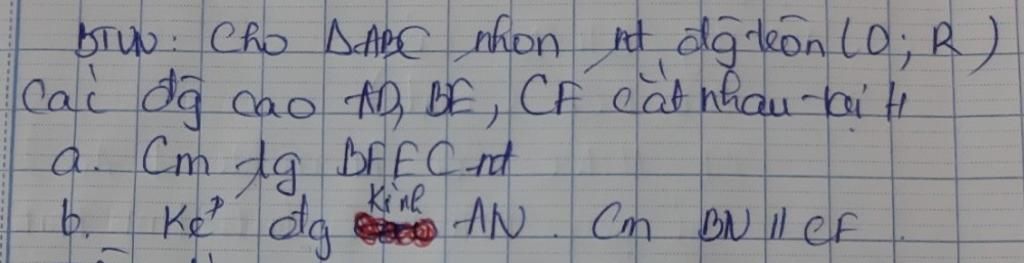 BTVN: Cho ΔABC nhọn nt đg tròn (O; R)
Các đg cao AD, BE, CF cắt nhau tại H
a. Cm tg BFEC nt
b. Kẻ đg kính AN. Cm BN // CF.